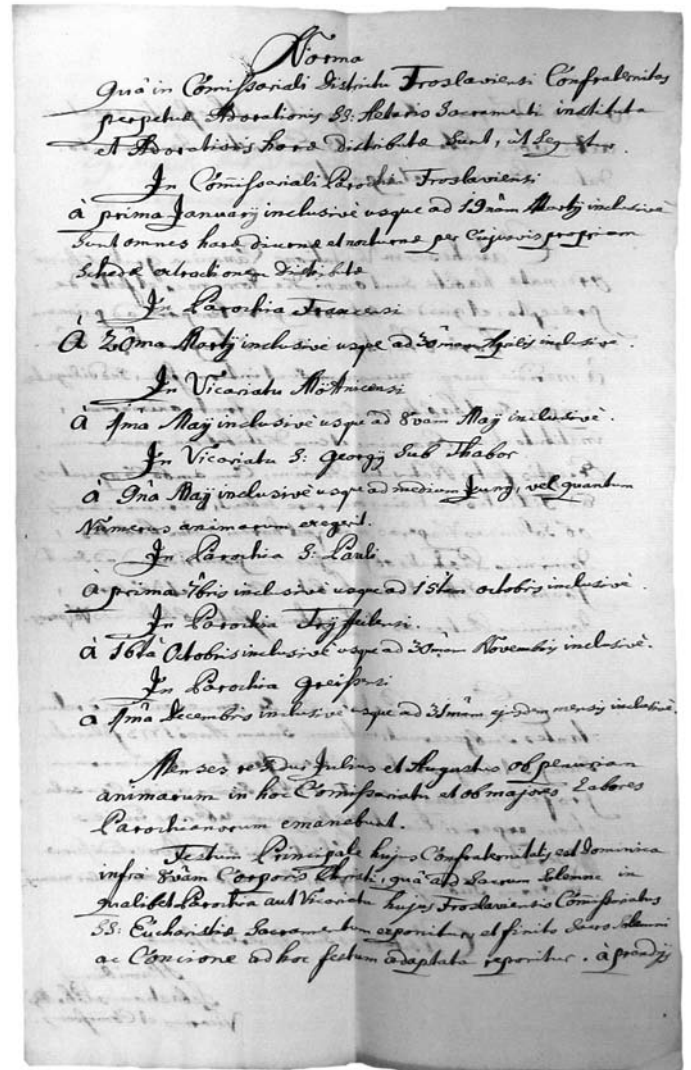 Norma
Quâ in Com̃issariali Districtu Froslaviensi Confraternitas
perpetuæ Adorationis SS: Altaris Sacramenti instituta
et Adorationis horæ distributæ sunt, ùt sequitur.
In Com̃issariali Parochia Froslaviensi
à prima Januarÿ inclusivè usque ad 19nam Martÿ inclusivè
sunt omnes horæ diurnæ et nocturnæ per cujusvis propriam
schedæ extractionem distributæ
In Parochia Francensi
à 20ma Martÿ inclusivè usque ad 30mam Aprilis inclusivè.
In Vicariatu Mötnicensi
à 1ma Maÿ inclusivè usque ad 8vam Maÿ inclusivè.
In Vicariatu S: Georgÿ Sub Thabor
à 9na Maÿ inclusivè usque ad medium Junÿ, vel quantum
Numerus animarum exegerit.
In Parochia S: Pauli
à prima 7bris inclusivè usque ad 15tam octobris inclusivè.
In Parochia Trÿffailensi.
à 16tâ Octobris inclusivè usque ad 30mam Novembris inclusivè.
In Parochia Greissensi
à 1mâ Decembris inclusivè usque ad 31mam ejusdem mensis inclusivè.
Menses residui Julius et Augustus ob penuriam
animarum in hoc Com̃issariatu et ob majores Labores
Parochianorum emanebunt.
Festum Principale hujus Confraternitatis est Dominica
infra 8vam Corporis Christi, quâ ad Sacrum Solemne in
qualibet Parochia aut Vicariatu hujus Froslaviensis Com̃issariatus
SS: Eucharistiæ Sacramentum exponitur, et finito Sacro Solemni
ac Concione ad hoc festum adaptata reponitur. à prandÿs